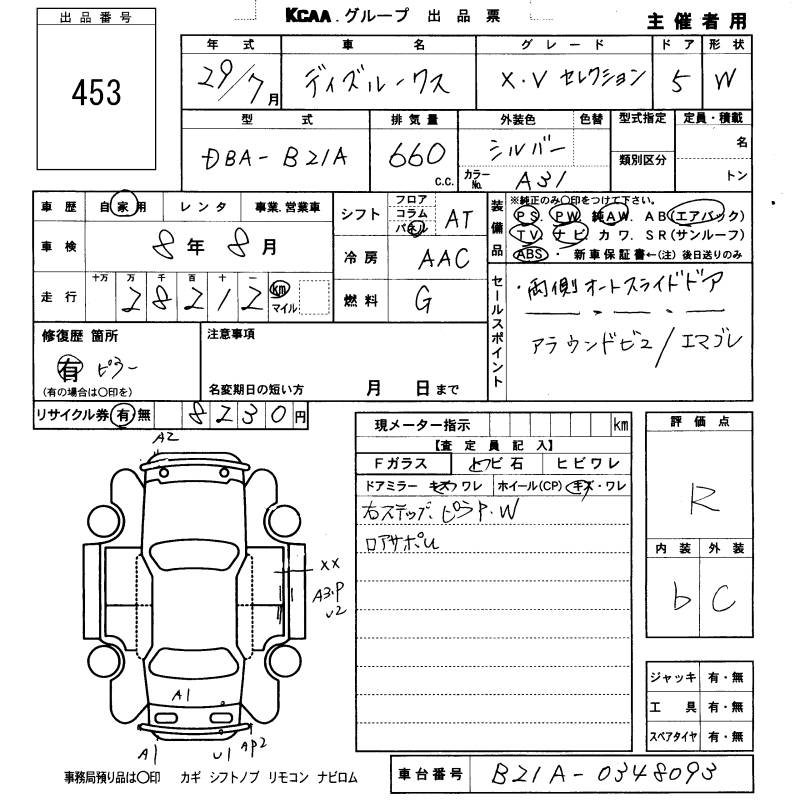 出品番号
453
KCAA.グループ 出品票
主催者用
年式 車名 グレード ドア 形状
29/7月 デイズルークス X・V セレクション 5 W
型式 排気量 外装色 色替 型式指定 定員・積載
DBA-B21A 660 c.c. シルバー 類別区分 名
カラーNo. A31 トン
車歴 自家用 レンタ 事業.営業車
車検 8年8月
走行 十万 万 千 百 十 一
28212 km マイル
シフト フロア コラム パネル AT
冷房 AAC
燃料 G
装備品 ※純正のみ〇印をつけて下さい。
PS PW 純AW. AB(エアバック)
TV. ナビ カワ. SR(サンルーフ)
ABS ・ 新車保証書←(注) 後日送りのみ
セールスポイント
・両側オートスライドドア
アラウンドビュー/エマブレ
修復歴 箇所
有 ピラー
(有の場合は〇印を)
注意事項
名変期日の短い方 月 日まで
リサイクル券 有 無 8230円
現メーター指示 km
【査定員記入】
Fガラス トビ石 ヒビワレ
ドアミラー キズ・ワレ ホイール(CP) キズ・ワレ
右ステップ.ピラP.W
ロアサポU
評価点
R
内装 外装
b C
ジャッキ 有・無
工具 有・無
スペアタイヤ 有・無
A2
XX
A3.P
U2
A1
A1 U1 AP2
事務局預り品は〇印 カギ シフトノブ リモコン ナビロム
車台番号 B21A-0348093